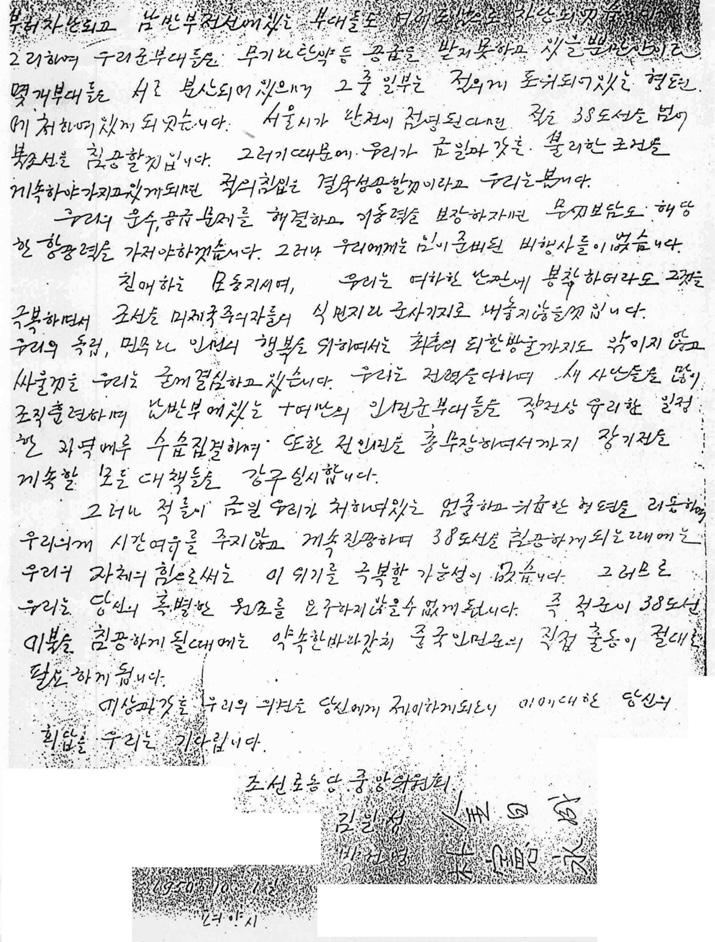 부터 차단되고 남반부전선에있는 부대들도 차단되고
그리하여 우리군부대들은 무기나탄약등 공급을 받지못하고 있을뿐만안이라
몇개부대들은 서로 분산되여있으며 그중 일부는 적의게 포위되여있는 형편
에 처하여있게 되엿습니다. 서울시가 완전이 점령된다면 적은 38도선을 넘어
북조선을 침공할것입니다. 그러기때문에 우리가 금일과갓흔 불리한 조건을
게속하야가지고있게되면 적의침입은 결국성공할것이라고 우리는봅니다.
우리의 운수,공급문제를 해결하고 기동력을 보장하자면 무엇보담도 해당
한 항공력을 가저야하겟습니다. 그러나 우리에게는 님이준비된 비행사들이 없습니다.
친애하는 모동지시여, 우리는 여하한 난관에 봉착하더라도 그것을
극복하면서 조선을 미제국주의자들의 식민지와 군사기지로 내놓지않을것입니다.
우리의 독립, 민주와 인민의 행복을 위하여서는 최후의 피한방울까지도 앆이지 않고
싸울것을 우리는 굳게결심하고있습니다. 우리는 전력을다하여 새 사단들을 많이
조직훈련하며 남반부에있는 十여만의 인민군부대들을 작전상 유리한 일정
한 지역에루 수습집결하며 또한 전인민을 총무장하여서까지 장기전을
게속할 모든 대책들을 강구실시합니다.
그러나 적들이 금일 우리가 처하여있는 엄중하고 위급한 형편을 리용하여
우리의게 시간여유를 주지않고 게속진공하여 38도선을 침공하게되는때에는
우리의 자체의 힘으로써는 이 위기를 극복할 가능성이 없습니다. 그러므로
우리는 당신의 특별한 원조를 요구하지않을수 없게됩니다. 즉 적군이 38도선
이북을 침공하게 될때에는 약속한바와갓치 중국인민군의 직접 출동이 절대로
필요하게 됩니다.
이상과갓흔 우리의 의견을 당신에게 제의하게되오니 이에대한 당신의
회답을 우리는 기다립니다.
조선로동당 중앙위원회
김일성 金日成
박헌영 朴憲永
1950. 10. 1일
평양시